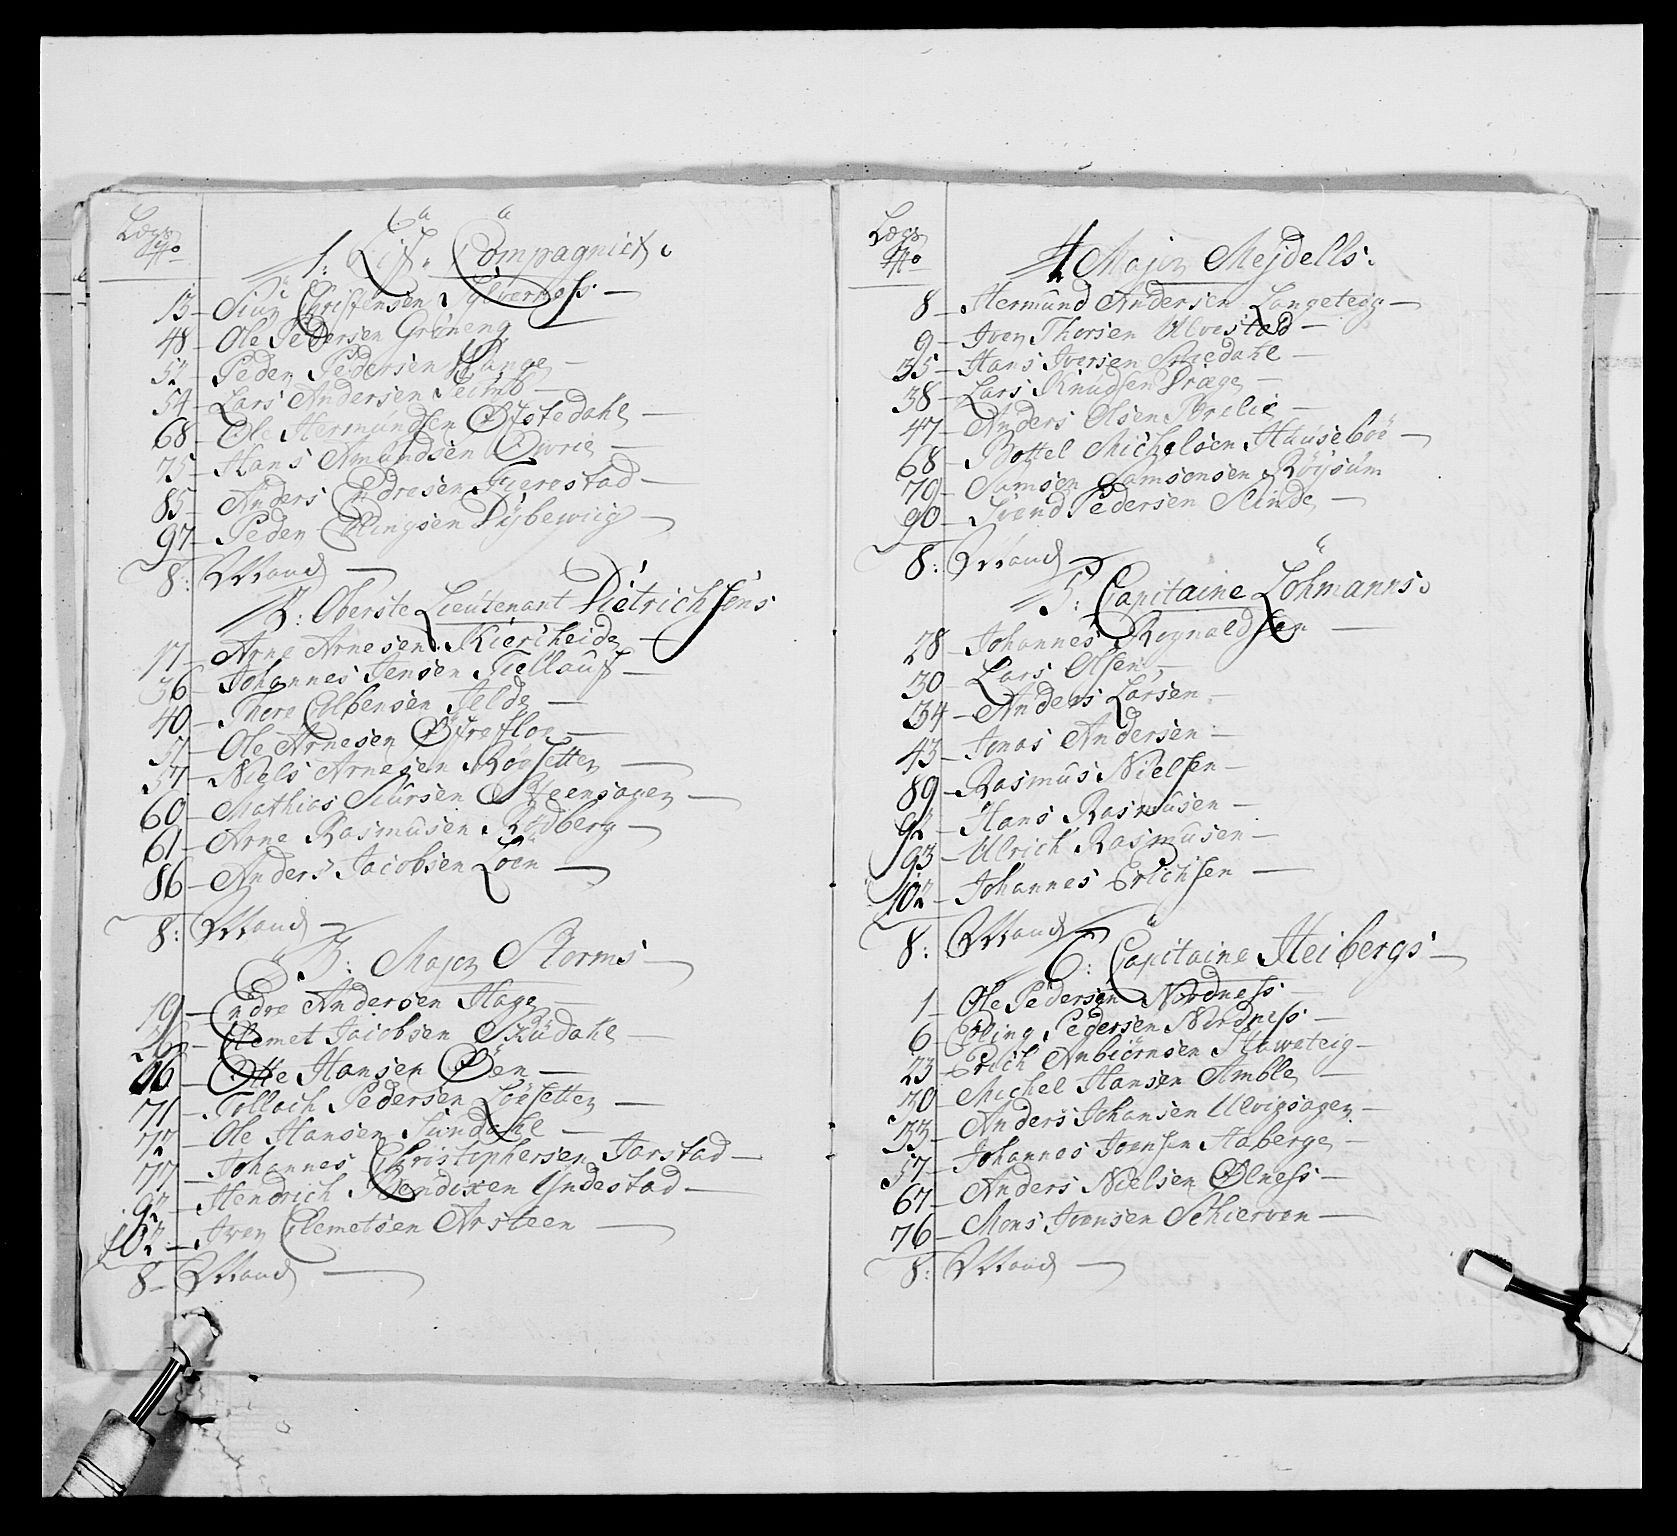 Lægs
No
1: Lif: Compagniet.
13 - Siur Christensen Sylvernoss -
48 - Ole Pedersen Grøneng
52 - Peder Pedersen Hange -
54 - Lars Andersen Seimb -
68 - Ole Hermundsen Ofstedahl -
75 - Hans Amundsen Ovrie -
85 - Anders Endresen Fierestad -
97 - Peder Ellingsen Dybewiig -
8: Mand -
2: Oberste Lieutenant Dietrichsons
17 - Arne Arnesen Kiercheide -
36 - Johannes Jensen -
40 - Thore Colbensen Felde -
51 - Ole Arnesen Øfrefloe -
57 - Niels Arnesen Røysetter -
60 - Mathias Siursen Steensager -
61 - Arne Rasmusen Rødberg -
86 - Anders Jacobsen Loen -
8: Mand -
3: Major Storms -
19 - Endre Andersen Hage -
56 - Clemet Jacobsen Skudahl -
66 - Otte Hansen Øen -
71 - Tollach Pedersen Løesetter -
72 - Ole Hansen Sundahl -
77 - Johannes Christophersen Jarstad -
92 - Hendrich Bendixen Yndestad -
102 - Iver Clemetsen Arsteen -
8 - Mand -
Lægs
No
4 Major Mejdells:
8 - Hermund Andersen Langeteig -
9 - Iver Thorsen Ulvestad -
35 - Hans Iversen Smedahl -
38 - Lars Knudsen Præge -
47 - Anders Olsen -
68 - Bottel Michelsen Hausebøe -
70 - Samson Samsonsen Røysum
90 - Svend Pedersen Slinde -
8: Mand -
5: Capitaine Lohmanns:
28 - Johannes Rognaldsen -
30 - Lars Olsen -
34 - Anders Larsen -
43 - Jonas Andersen -
89 - Rasmus Nielsen -
92 - Hans Rasmusen -
93 - Ulrich Rasmusen -
102 - Johannes Erichsen -
8: Mand
6: Capitaine Heibergs -
1 - Ole Pedersen Nordness -
6 - Elling Pedersen Nordness -
23 - Erich Anbiørnsen Staweteig -
30 - Michel Hansen Amble -
33 - Anders Johansen Ulvigsager -
57 - Johannes Ivensen Haberge -
67 - Anders Nielsen Ølness -
76 - Mons Ivensen Schierven -
8: Mand -